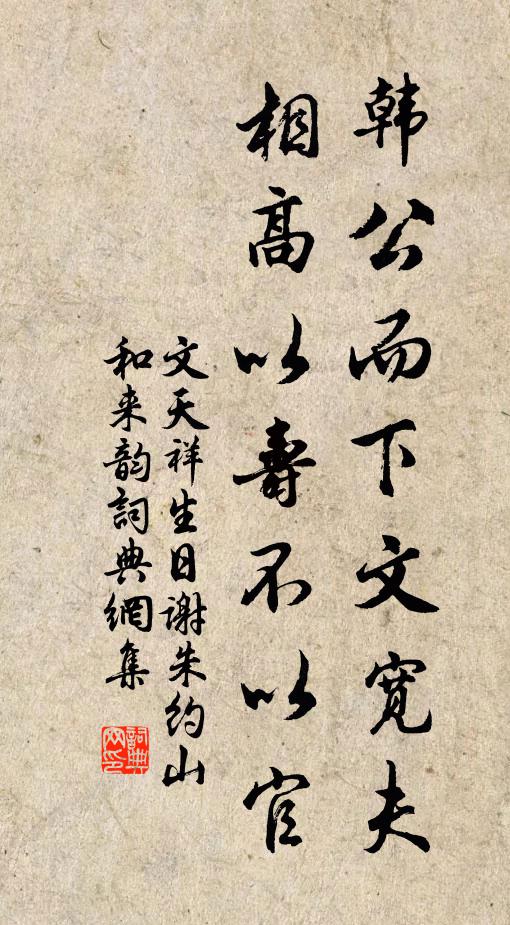 韩公而下文宽夫
相高以壽不以官
文天祥生日谢朱约山
和来韵詞典網集
詞典
网印